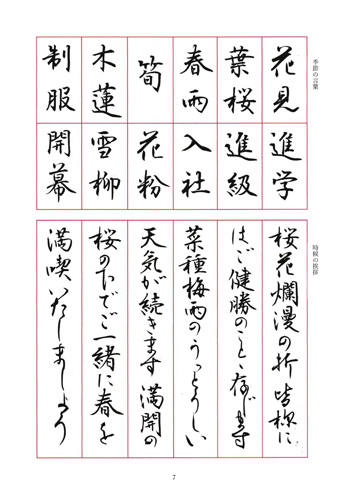 季節の言葉
花見
葉桜
春雨
筍
木蓮
制服
進学
進級
入社
花粉
雪柳
開幕
時候の挨拶
桜花爛漫の折 皆様に
はご健勝のことと存じます
菜種梅雨のうっとうしい
天気が続きます 満開の
桜の下でご一緒に春を
満喫いたしましょう
7